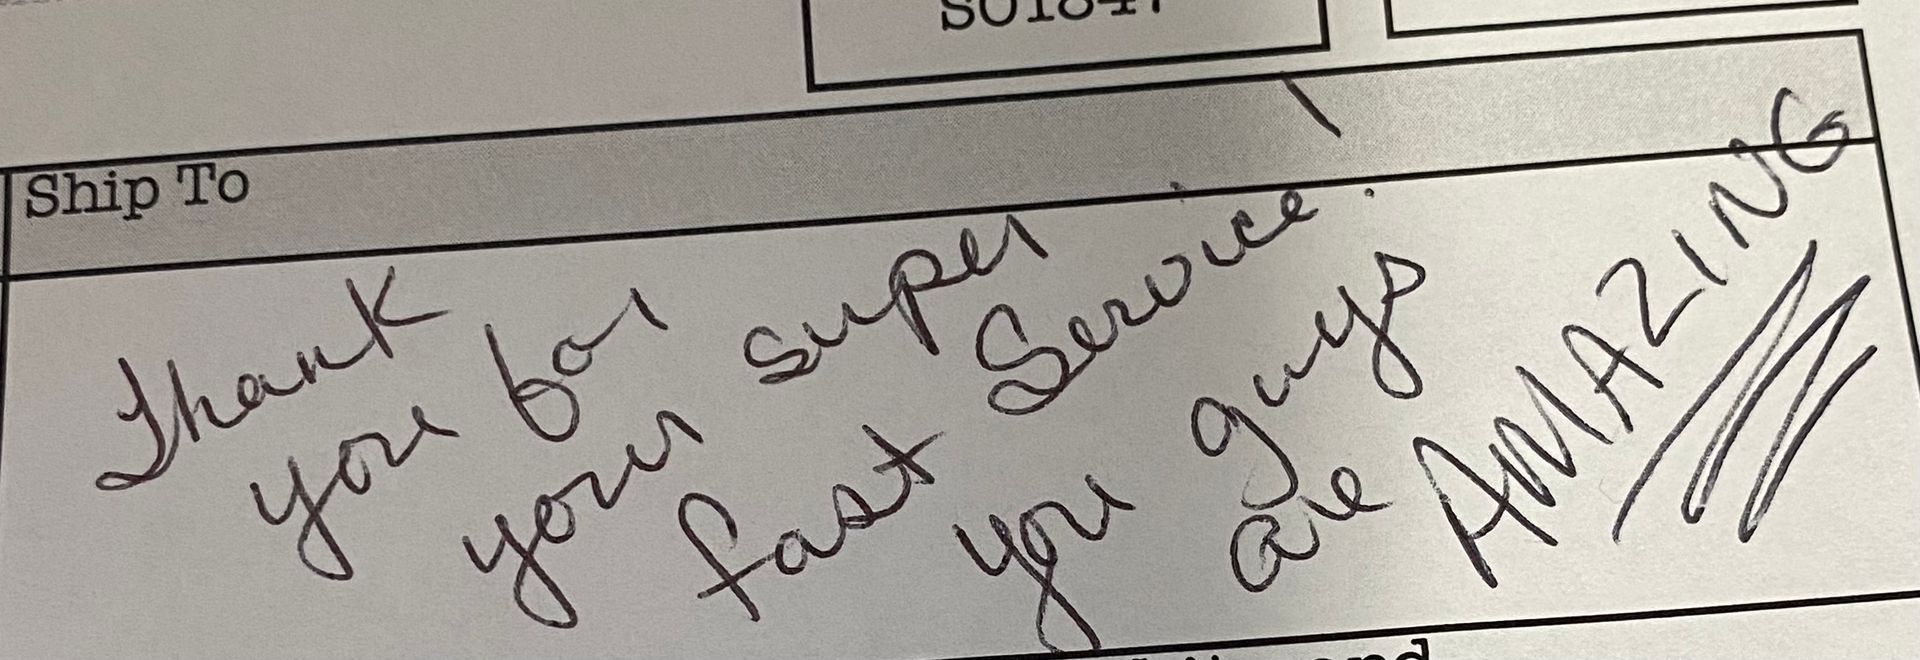 SO1847
Ship To
Thank
you for
your super
fast Service!
you guys
are AMAZING